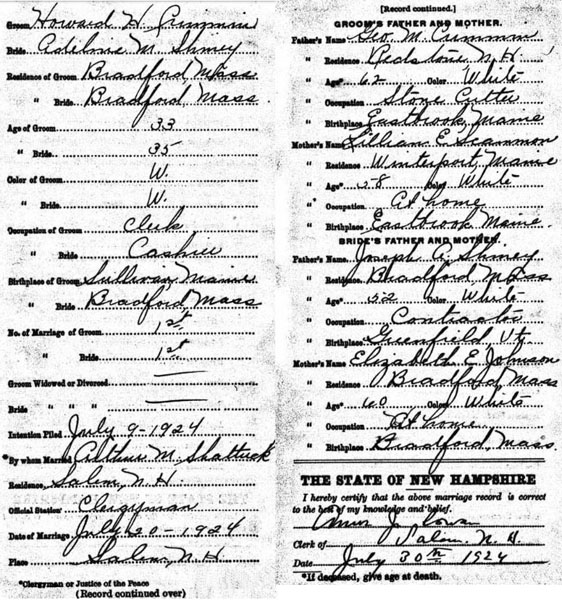 Groom Howard H. Crummin
Bride M. Shmey
Residence of Groom Bradford Mass
" Bride Bradford, Mass
Age of Groom 33
" Bride 35
Color of Groom W.
" Bride W.
Occupation of Groom Clerk
" Bride Cashier
Birthplace of Groom Sullivan Maine
" Bride Bradford, Mass
No. of Marriage of Groom 1st
" Bride 1st
Groom Widowed or Divorced
Bride " " "
Intention Filed July 9-1924
*By whom Married Arthur M. Shattuck
Residence Salem, N.H.
Official Station Clergyman
Date of Marriage July 20-1924
Place Salem, N.H.
*Clergyman or Justice of the Peace
(Record continued over)
[Record continued.]
GROOM'S FATHER AND MOTHER.
Father's Name Geo. M. Crummin
" Residence Redstone, N.H.
" Age* 62 Color White
" Occupation Stone Cutter
" Birthplace Eastbrook, Maine
Mother's Name Lillian E. Scammon
" Residence Winterport, Maine
" Age* 58 Color White
" Occupation At home
" Birthplace Eastbrook Maine
BRIDE'S FATHER AND MOTHER.
Father's Name Joseph A. Shmey
" Residence Bradford Mass
" Age* 52 Color White
" Occupation Contractor
" Birthplace Greenfield, Vt.
Mother's Name Elizabeth E. Johnson
" Residence Bradford, Mass
" Age* 60 Color White
" Occupation At home
" Birthplace Bradford, Mass.
THE STATE OF NEW HAMPSHIRE
I hereby certify that the above marriage record is correct
to the best of my knowledge and belief.
Clerk of Salem, N.H.
Date July 30th 1924
*If deceased, give age at death.